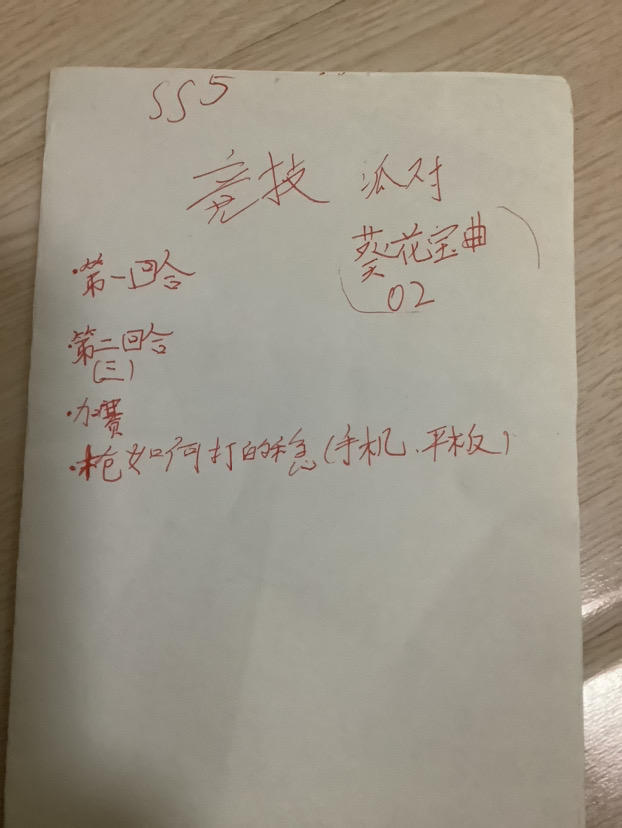 SS5
竞技 派对
葵花宝典
02
·第一回合
·第二回合
(三)
·加赛
·枪如何打的稳(手机、平板)